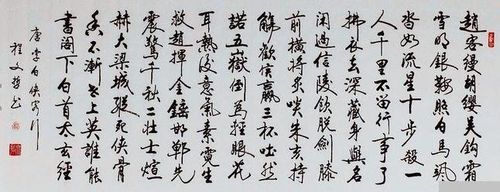 趙客縵胡纓吴鈎霜
雪明銀鞍照白馬颯
沓如流星十步殺一
人千里不留行事了
拂衣去深藏身與名
閑過信陵飲脱劍膝
前横將炙啖朱亥持
觴勸侯嬴三杯吐然
諾五嶽倒爲輕眼花
耳熱後意氣素霓生
救趙揮金錘邯鄲先
震驚千秋二壯士煊
赫大梁城縱死俠骨
香不慚世上英誰能
書閣下白首太玄經
唐李白俠客行
程文